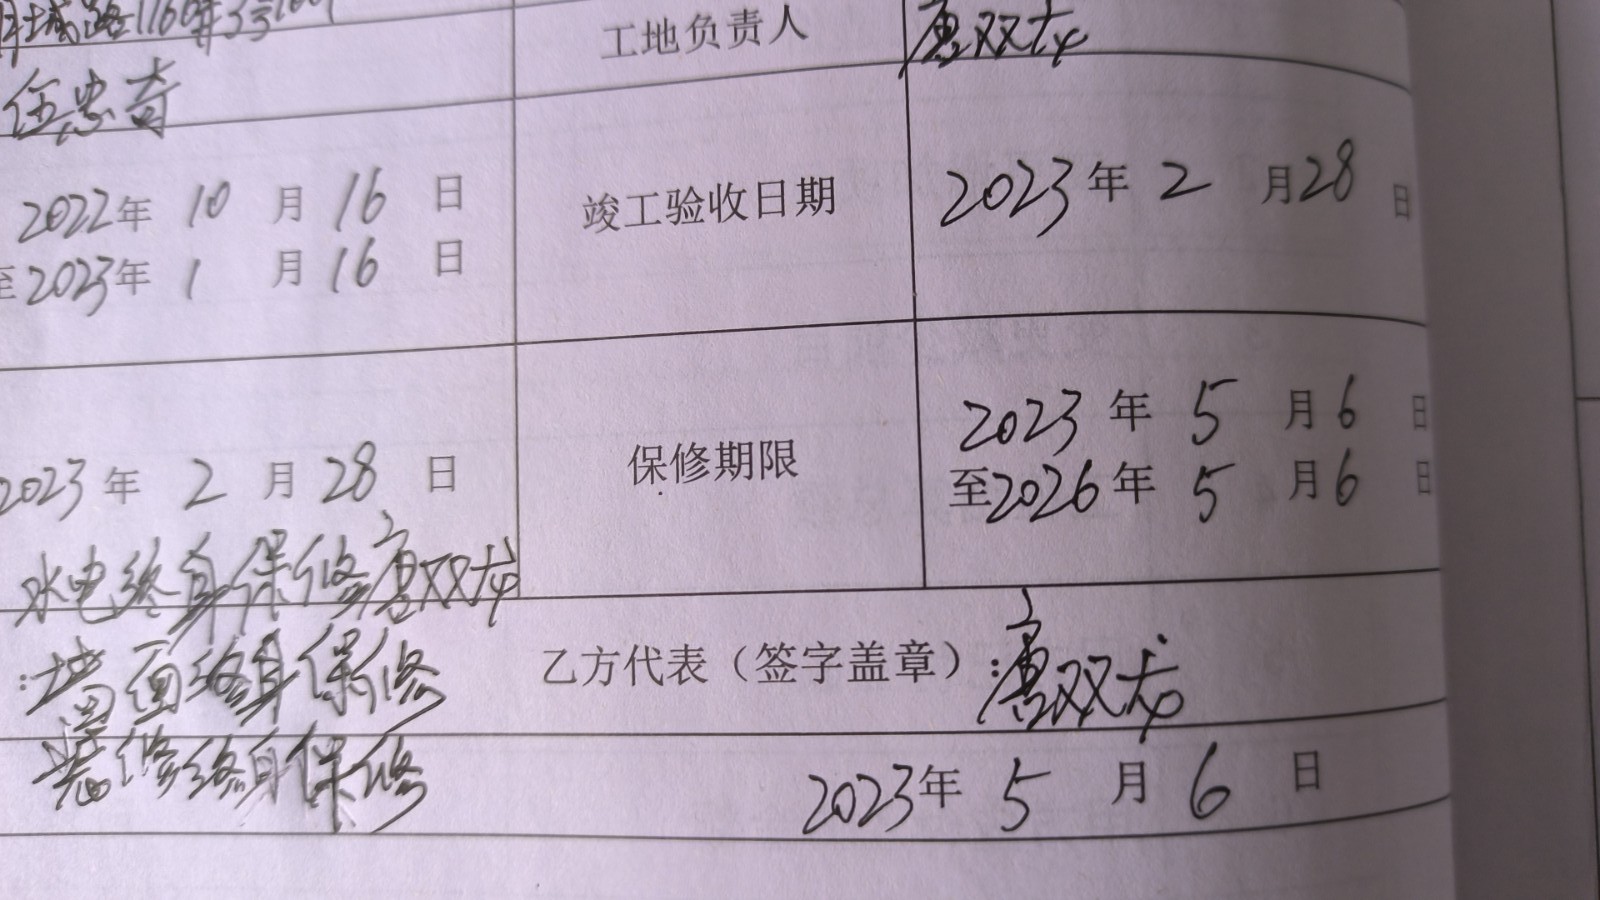 城路1160弄3号
工地负责人 唐双龙
任忠奇
2022年 10 月 16 日
至2023年 1 月 16 日
竣工验收日期
2023年 2 月28日
2023年 2 月 28 日
保修期限
2023年 5 月 6 日
至2026年 5 月 6 日
水电终身保修唐双龙
:墙面终身保修
乙方代表（签字盖章）:唐双龙
装修终身保修
2023年 5 月 6 日